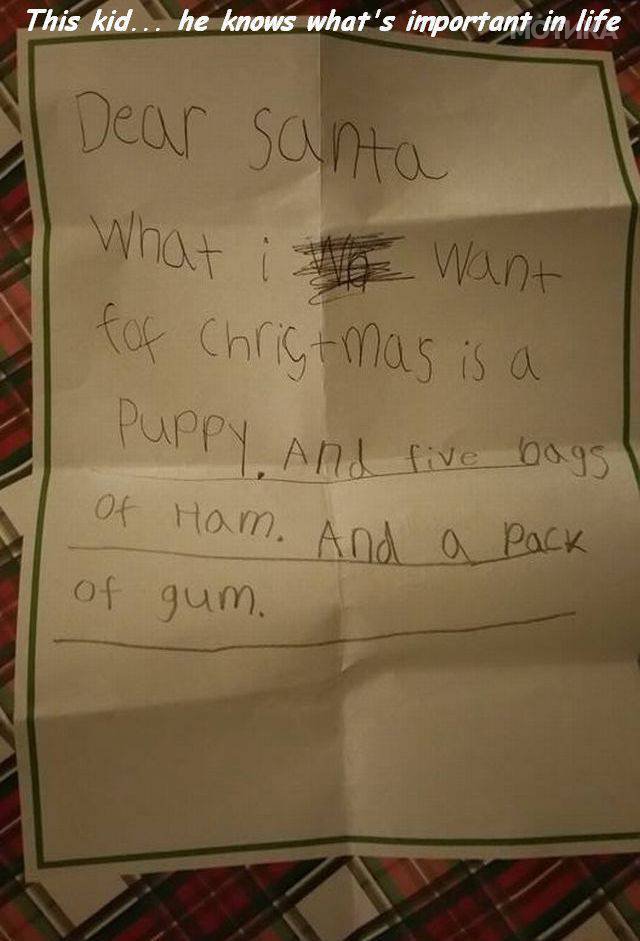 This kid... he knows what's important in life
МОТИКА
Dear Santa
What i want
for christmas is a
Puppy. And five bags
of Ham. And a pack
of gum.